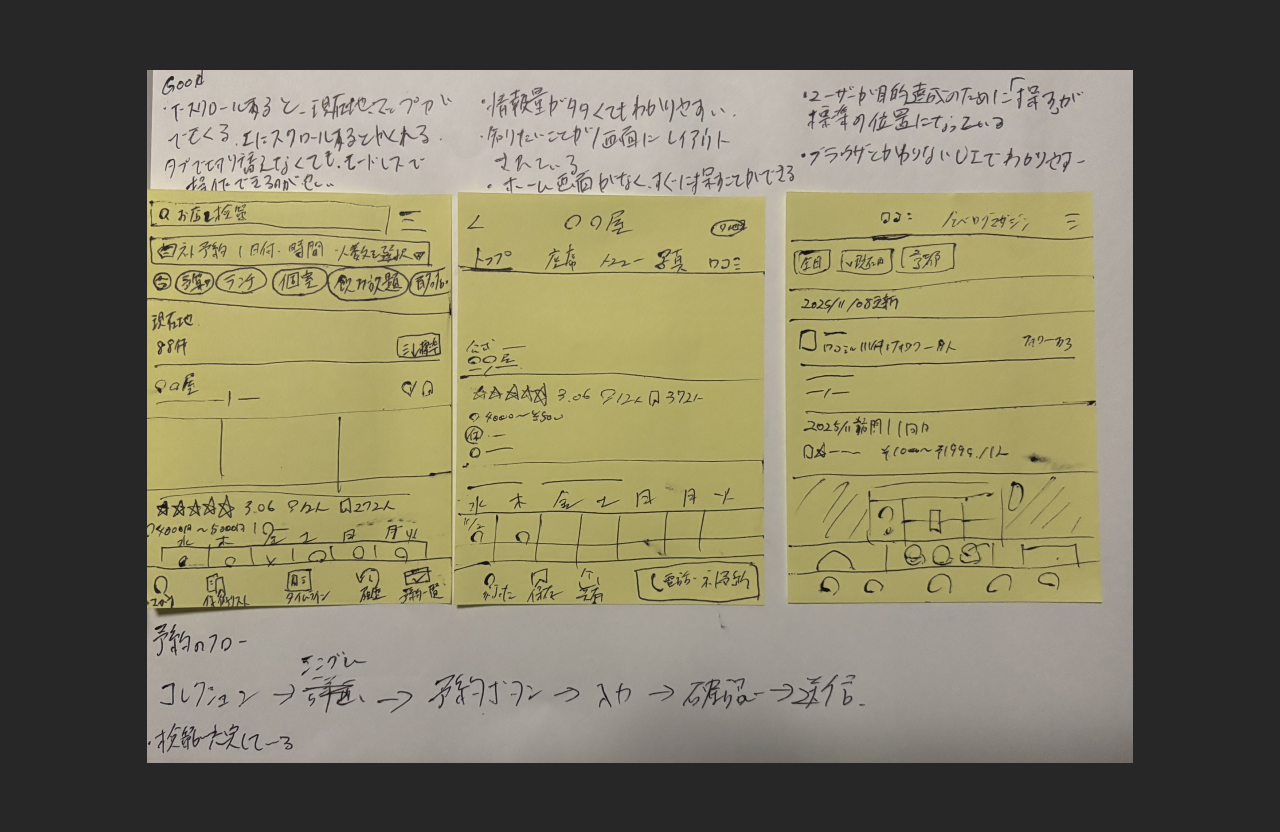 Good
・下スクロールすると、現在地、マップが
でてくる。上にスクロールするとかくれる。
タブで切り替えなくても、モードレスで
操作できるのが良い
・情報量が多くてもわかりやすい。
・知りたいことが1画面にレイアウト
されている
・ホーム画面がなく、すぐに探すことができる
・ユーザーが目的達成のために「探す」が
標準の位置になっている
・ブラウザとかわらないUIでわかりやすい
お店を検索
ネット予約 | 日付・時間・人数を選択
予算 ランチ 個室 飲み放題
現在地
88件
〇〇屋
☆☆☆☆☆ 3.06 12人 272人
4000円〜5000円
水 木 金 土 日 月 火
× 〇 〇 〇
タイムライン
予約一覧
<
〇〇屋
トップ 座席 メニュー 写真 口コミ
公式
〇〇屋
☆☆☆☆☆ 3.06 12人 372人
休
水 木 金 土 日 月 火
電話・ネット予約
食べログマガジン
全国
京都
2025/11/08更新
フォロワー
2025/11訪問 | 1回目
予約のフロー
コレクション → シングル → 予約ボタン → 入力 → 確認 → 送信
・検索が充実している